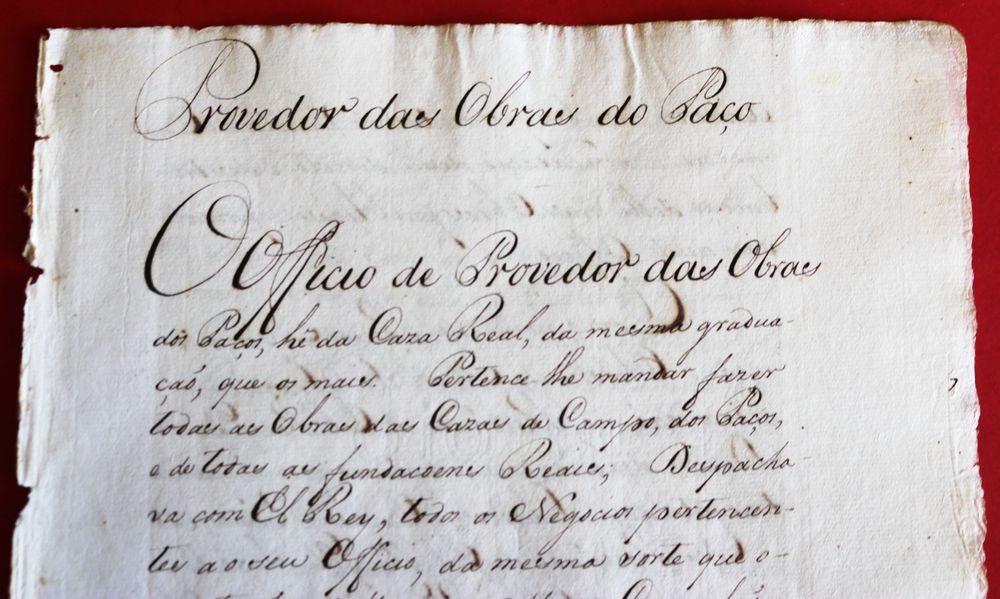 Provedor das Obras do Paço
O Officio de Provedor das Obras
dos Paços, he da Caza Real, da mesma gradua-
çaõ, que os mais. Pertence lhe mandar fazer
todas as Obras das Cazas de Campo, dos Paços,
e de todas as fundacoens Reaes; Despacha-
va com El Rey, todos os Negocios pertencen-
tes ao seu Officio, da mesma sorte que o-